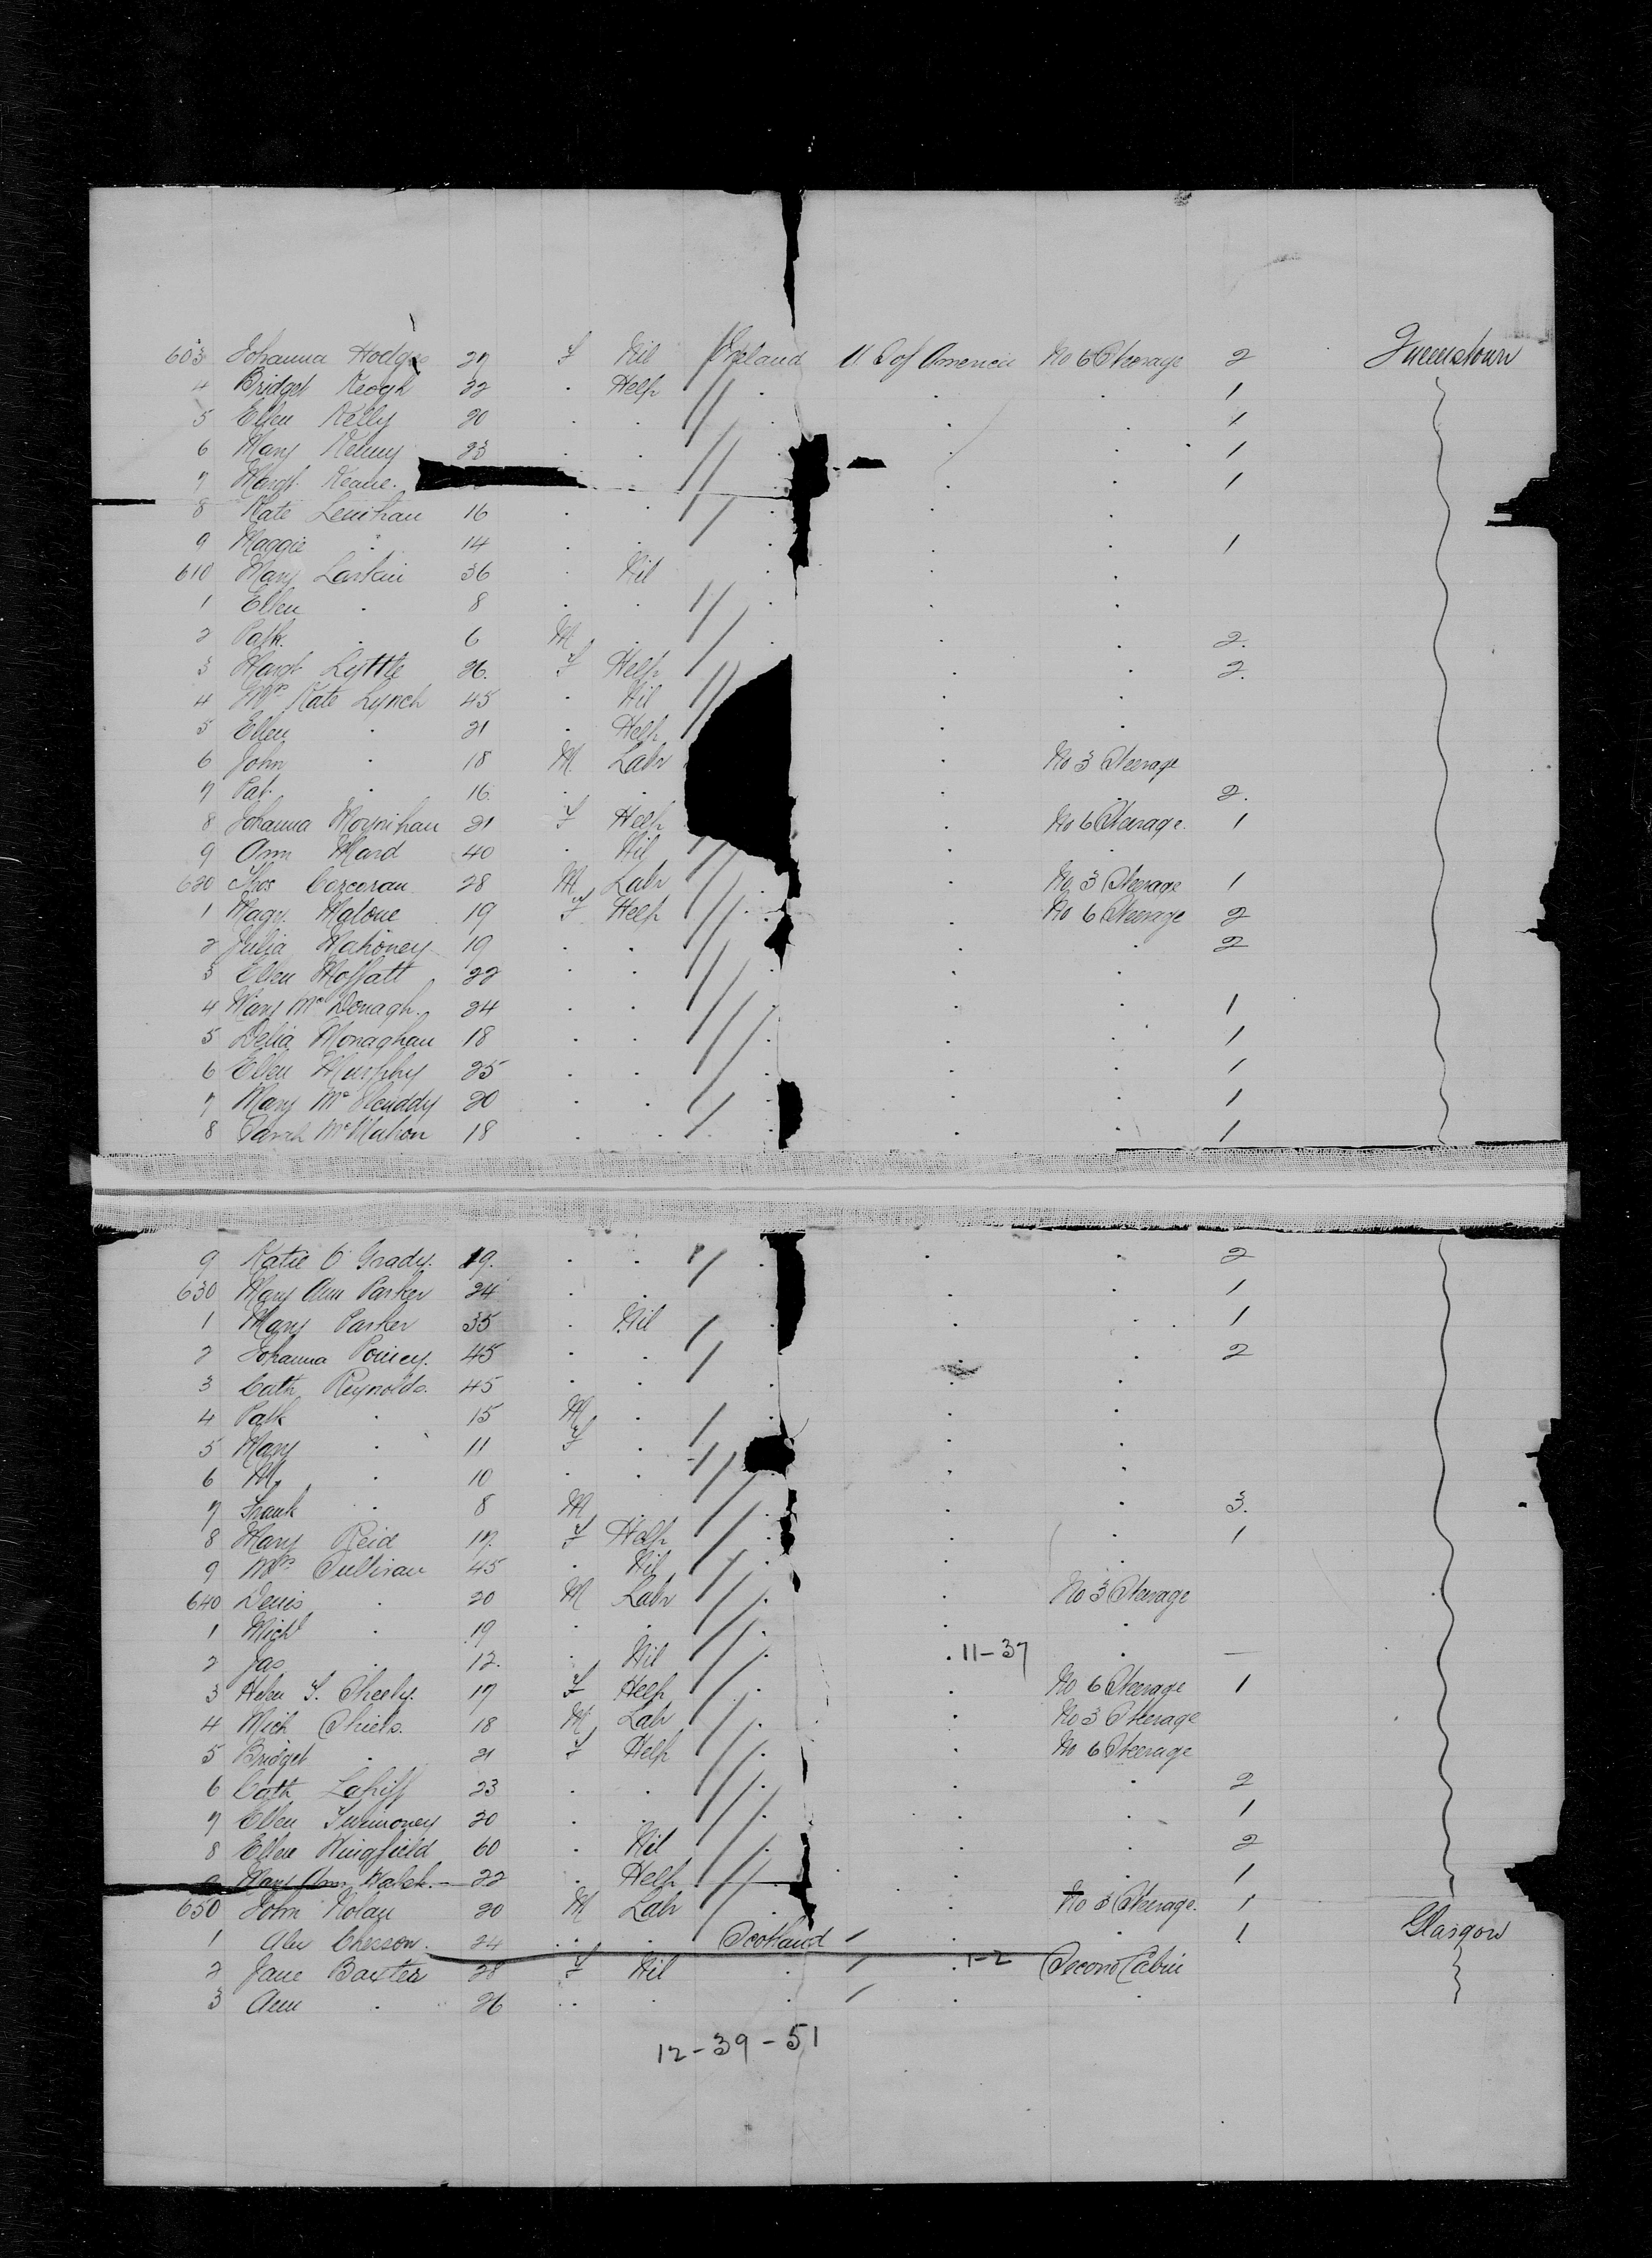 603 Johanna Hodge 27 F Nil Ireland U S of America No 6 Steerage 2 Queenstown
4 Bridget Keogh 22 . Help . . . 1
5 Ellen Kelly 20 . . . . . 1
6 Mary 23 . . . . . 1
7 Margt. Keane. . . . 1
8 Kate Lenihan 16 . . . . .
9 Maggie " 14 . . . . . 1
610 Mary Larkin 36 . Nil . . .
1 Ellen . 8 . . . . .
2 Patk. . 6 M . . . . 2.
3 Margt Lyttle 26. F Help . . 2.
4 Mrs Kate Lynch 45 . Nil . .
5 Ellen . 21 . Help . .
6 John . 18 M. Labr . No 3 Steerage
7 Pat. . 16. . . . . 2.
8 Johanna Moynihan 21 F Help . No 6 Steerage. 1
9 Ann Ward 40 . Nil . .
620 Thos Corcoran 28 M Labr . . No 3 Steerage 1
1 Magy. Malone 19 F Help . . No 6 Steerage 2
2 Julia Mahoney 19 . . . . 2
3 Ellen Moffatt 22 . . . . .
4 Mary McDonagh. 24 . . . . . 1
5 Delia Monaghan 18 . . . . . 1
6 Ellen Murphy 25 . . . . . 1
7 Mary Mc 20 . . . . 1
8 Sarah McMahon 18 . . . . . 1
9 Katie O Grady. 19. . . . . . 2
630 Mary Ann Parker 24 . . . . 1
1 Mary Parker 35 . Nil . . . 1
2 Johanna 45 . . . . . 2
3 Cath Reynolds. 45 . . . . .
4 Patk . 15 M . . . .
5 Mary . 11 F . . .
6 M. . 10 . . . .
7 Frank . 8 M . . . . 3.
8 Mary Reid 17. F Help . . . 1
9 Mrs Sullivan 45 . Nil . . .
640 Denis . 20 M Labr . . No 3 Steerage
1 Michl . 19 . . . . .
2 Jas . 12. . Nil . . 11-37 . —
3 Helen T. Sheehy. 17 F Help . . No 6 Steerage 1
4 Mich Shiels. 18 M Labr . . No 3 Steerage
5 Bridget . 21 F Help . . No 6 Steerage
6 Cath Lahiff 23 . . . . . 2
7 Ellen Twimoney 20 . . . . . 1
8 Ellen Wingfield 60 . Nil . . . 2
9 Mary Ann Walsh. 22 . Help . . . 1
650 John Nolan 20 M Labr . . No 3 Steerage. 1
1 Alex 24 . . Scotland . . 1 Glasgow
2 Jane Baxter 28 F Nil . . 1-2 Second Cabin
3 Ann . 26 . . . . .
12-39-51